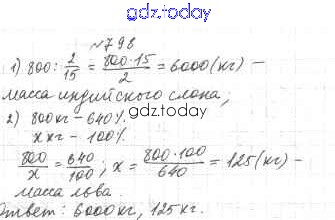 gdz.today
№798
1) 800 : 2/15 = 800·15/2 = 6000 (кг) –
масса индийского слона;
gdz.today
2) 800 кг – 640%
х кг – 100%
800/х = 640/100; х = 800·100/640 = 125 (кг) –
масса льва.
Ответ: 6000 кг, 125 кг.
gdz.today